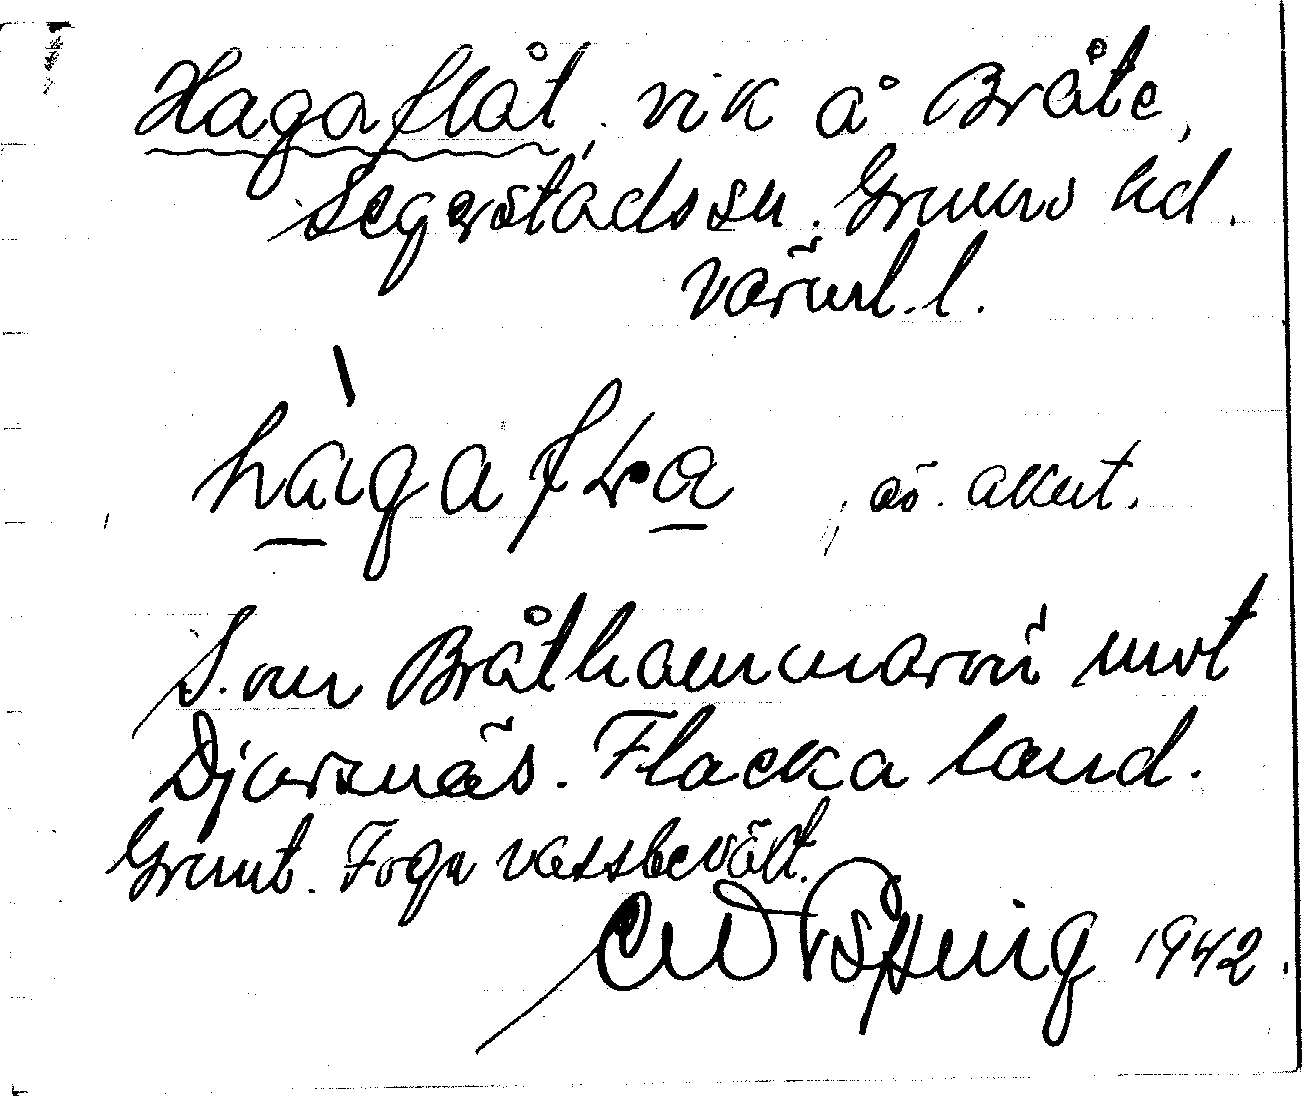 Hagaflåt, vik å Bråte,
Segerstadssn. Grums hd.
värml. l.
hàgafɫa, äs. akut.
S. om Bråthammarön mot
Djursnäs. Flacka land.
Grunt. Föga vassbevält.
1942.